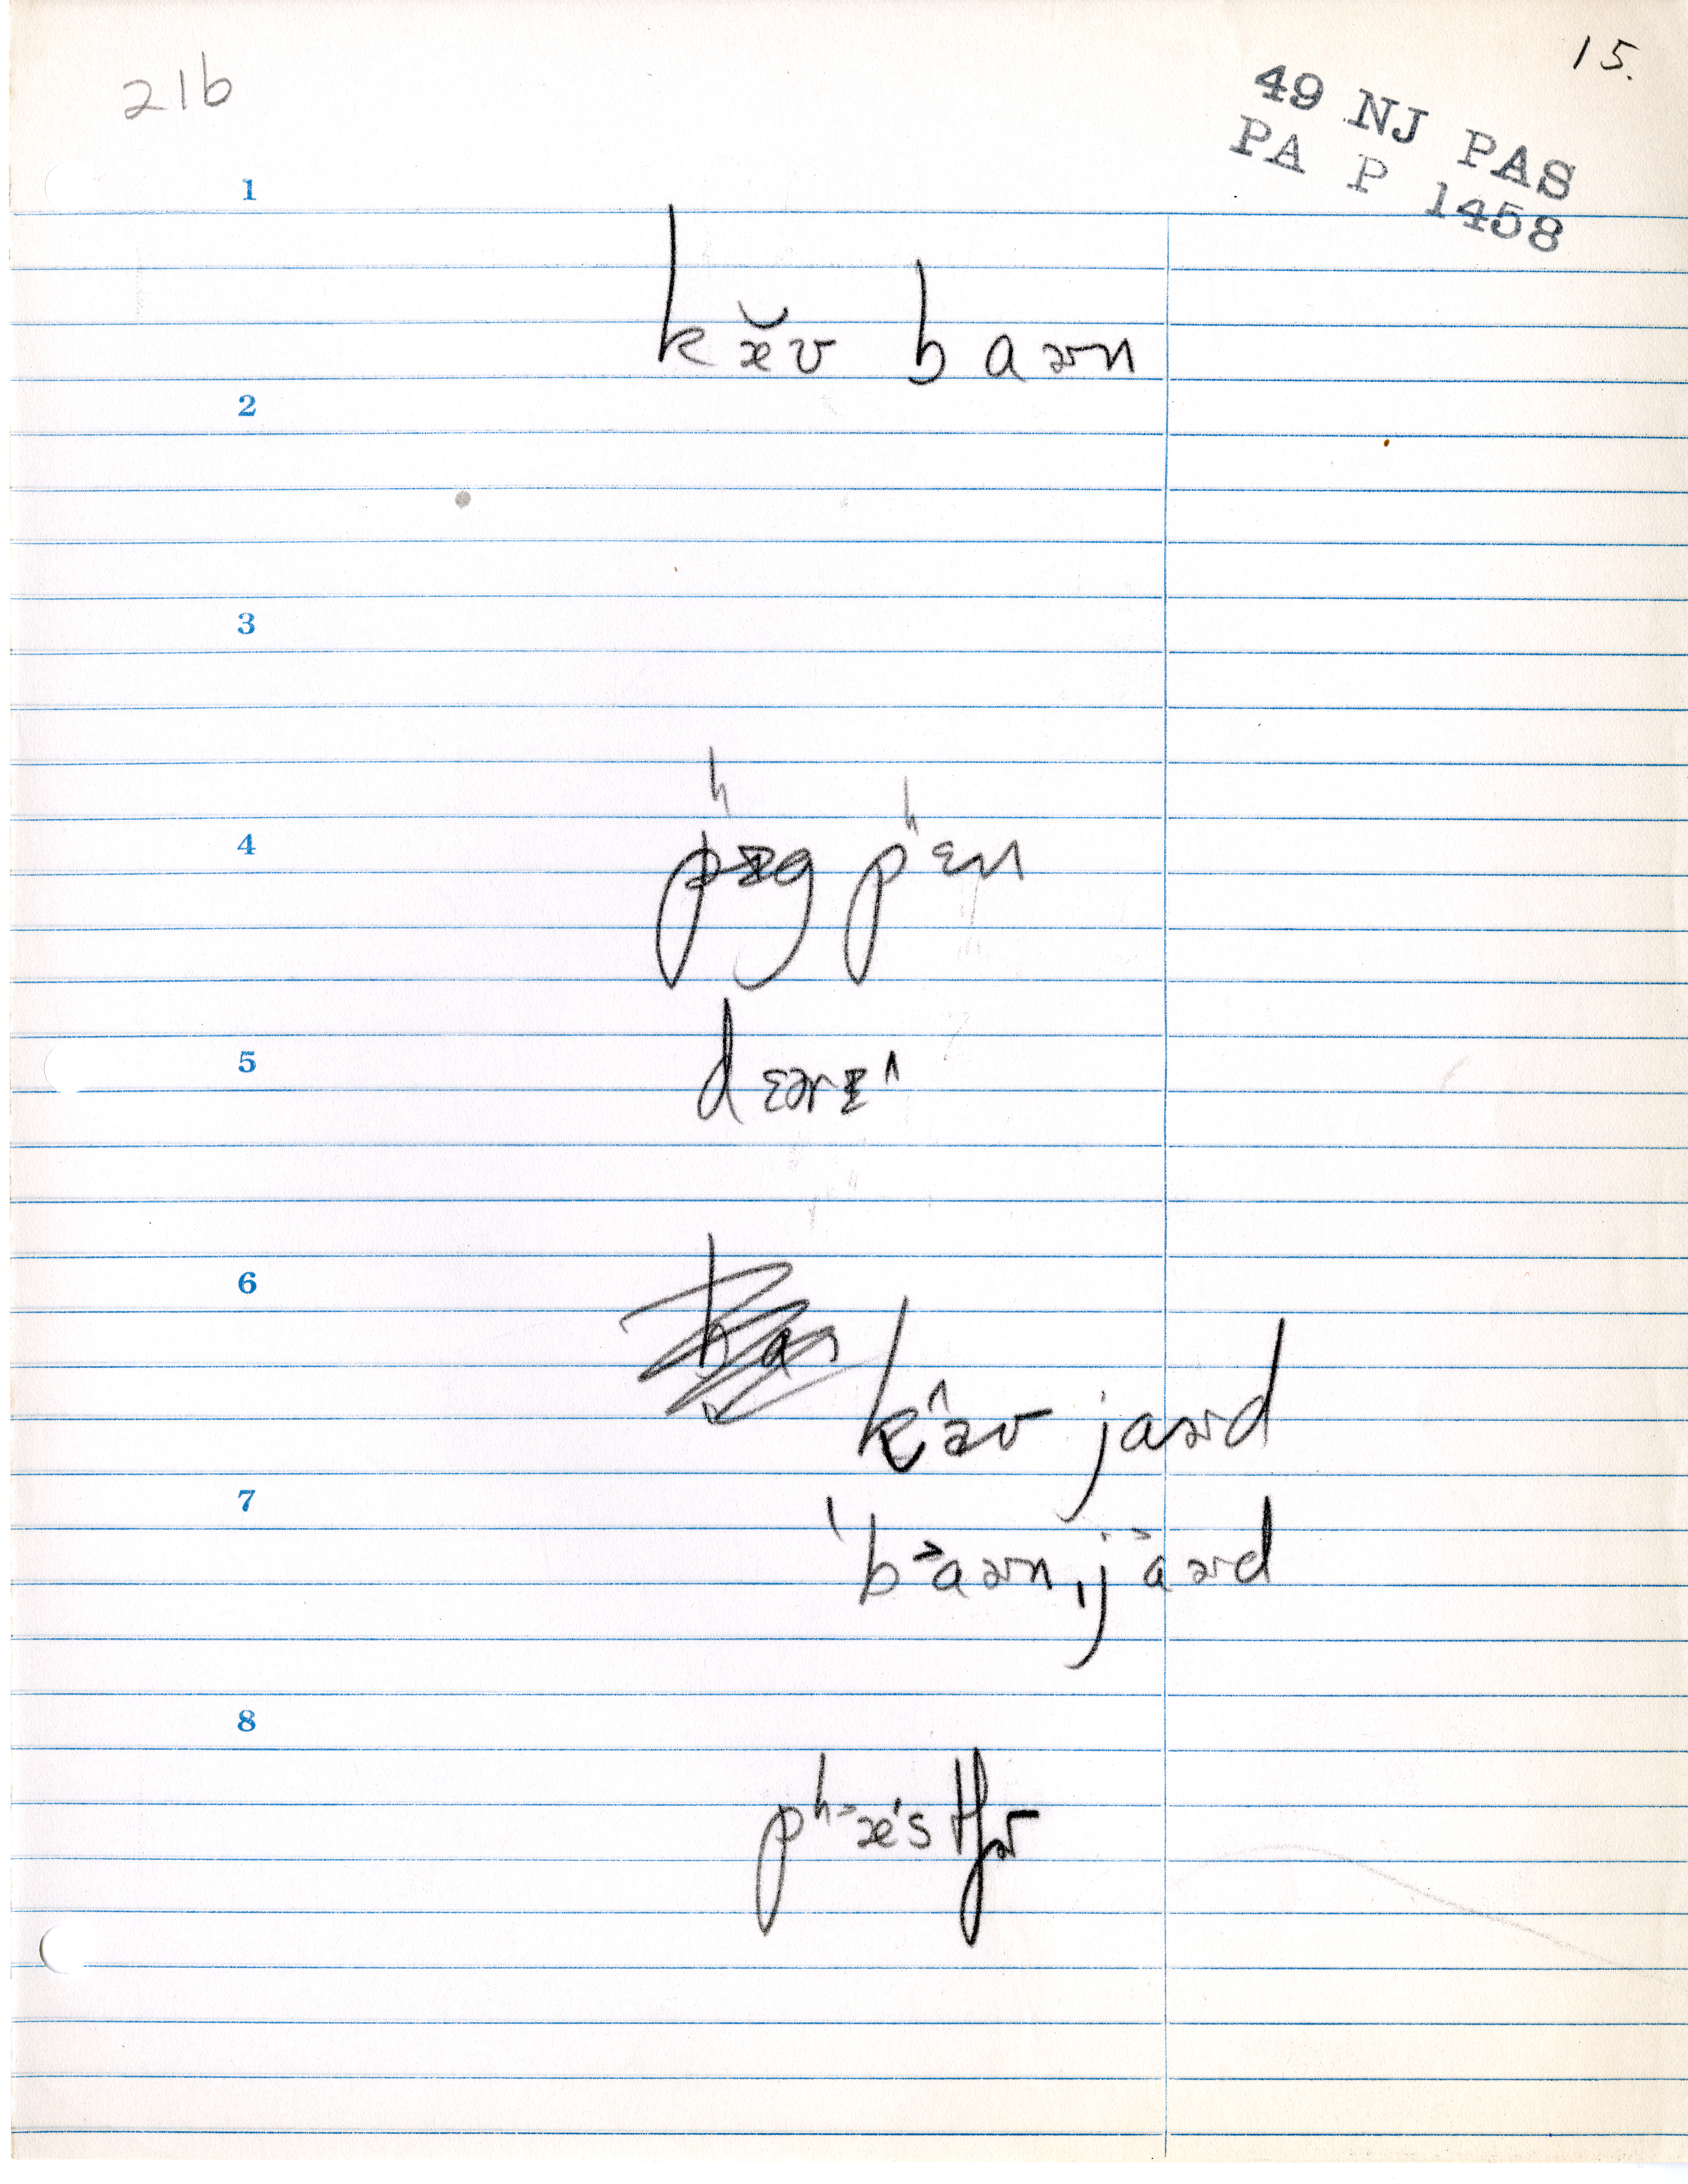 21b
15.
49 NJ PAS
PA P 1458
1
kæ̆v baɚn
2
3
4
pʰɪg pʰɛn
5
dɛɚɪ^
6
k^æv jaɚd
7
ˈb˃aɚn ˌja˃ɚd
8
pʰ˃æ'stʃɚ